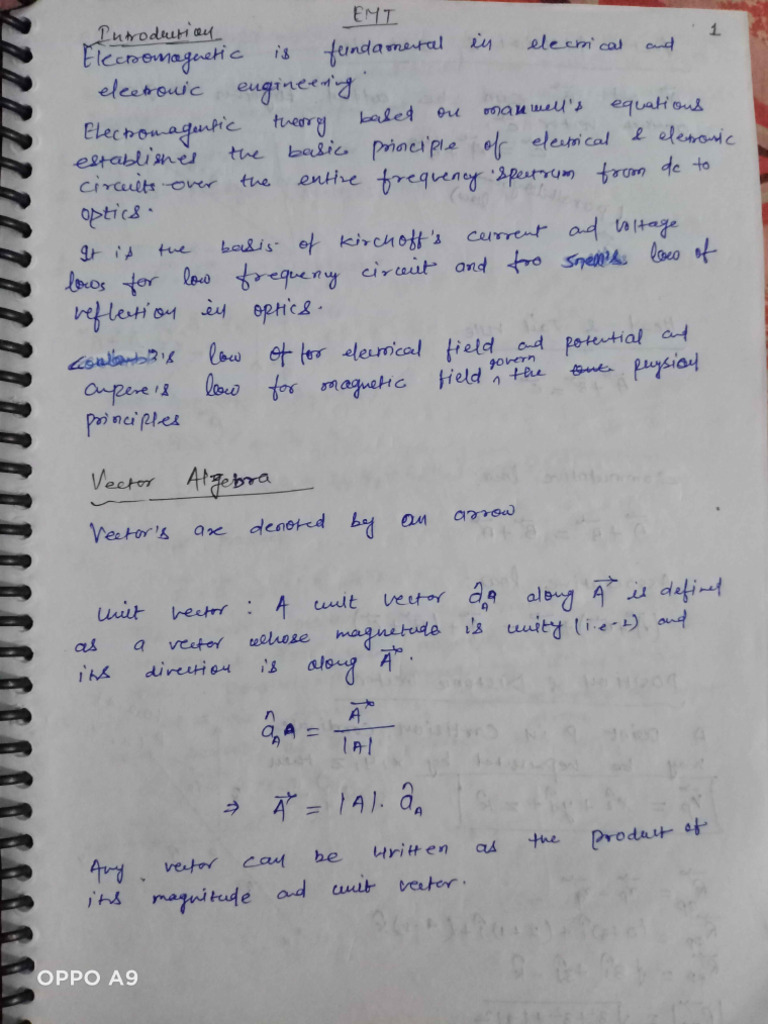 EMT
1
Introduction
Electromagnetic is fundamental in electrical and
electronic engineering.
Electromagentic theory based on maxwell's equations
establishes the basic principle of electrical & eletronic
circuits over the entire frequency spectrum from dc to
optics.
It is the basis of Kirchoff's current and voltage
laws for low frequency circuit and fro snell's law of
reflection in optics.
law of for electrical field and potential and
ampere's law for magnetic field govern the physical
principles
Vector Algebra
Vector's are denoted by an arrow
Unit vector : A unit vector âA along A⃗ is defined
as a vector whose magnetude is unity (i.e-1) and
its direction is along A⃗.
âA = A⃗ / |A|
⇒ A⃗ = |A| . âA
Any vector can be written as the product of
its magnitude and unit vector.
OPPO A9